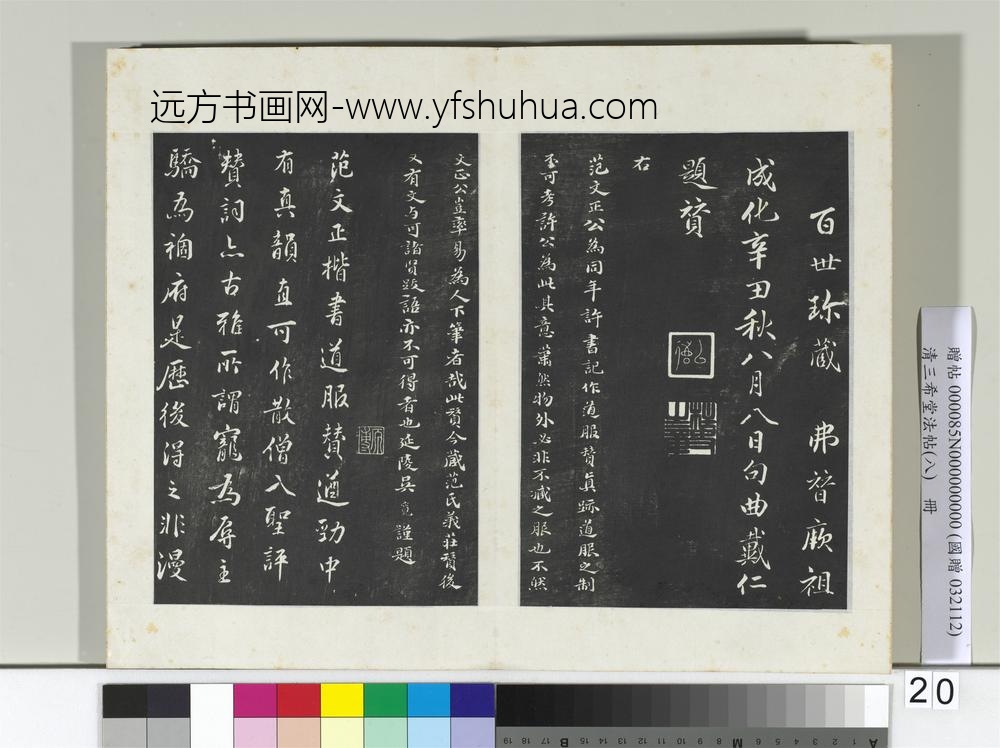 远方书画网-www.yfshuhua.com
百世珎藏 弗替厥祖
成化辛丑秋八月八日句曲戴仁
題
右
范文正公為同年許書記作道服贊真跡道服之制
可考許公為此其意蕭然物外必非不臧之服也不然
文正公豈率易為人下筆者哉此贊今藏范氏義莊贊後
又有文与可諸賢跋語亦不可得者也延陵吳寬謹題
范文正楷書道服贊遒勁中
有真韻直可作散僧入聖評
贊詞亦古雅所謂寵為辱主
驕為禍府是歷後得之非漫
贈帖 000085N000000000 (國贈 032112)
清三希堂法帖(八) 冊
20